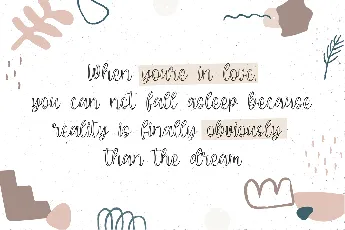 When you're in love,
you can not fall asleep because
reality is finally obviously
than the dream